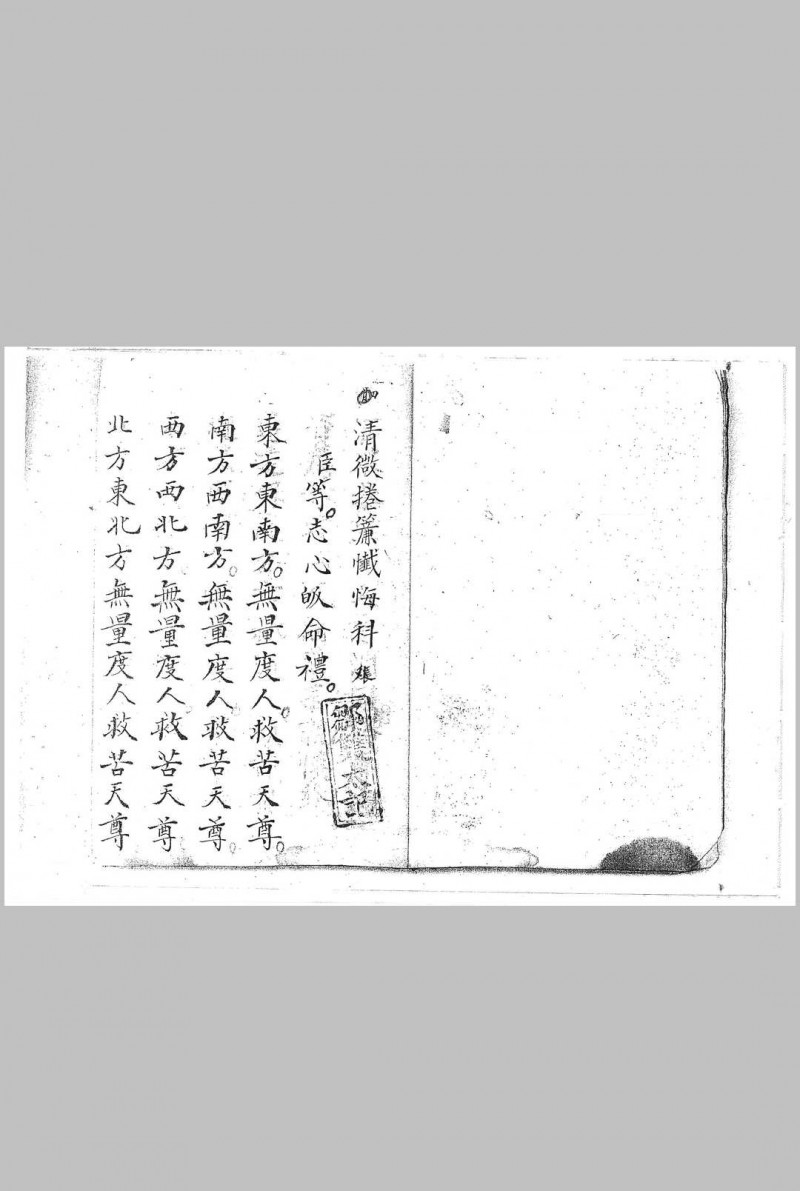 清微捲簾懺悔科
臣等。志心皈命禮。
東方東南方。無量度人。救苦天尊。
南方西南方。無量度人救苦天尊。
西方西北方無量度人救苦天尊
北方東北方無量度人救苦天尊
太記